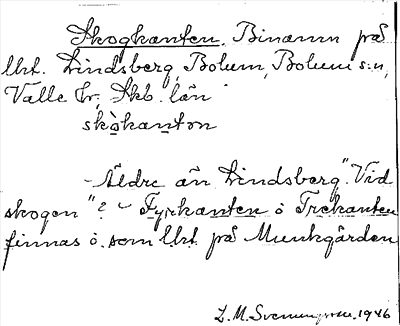 Skogkanten. Binamn på
lht. Lindsberg, Bolum, Bolums sn,
Valle hd, Skb. län
skòkantən
- Äldre än Lindsberg. "Vid
skogen"? - Fyrkanten o Trekanten
finnas o. som lht på Munkgården
L. M. Svenungsson. 1946